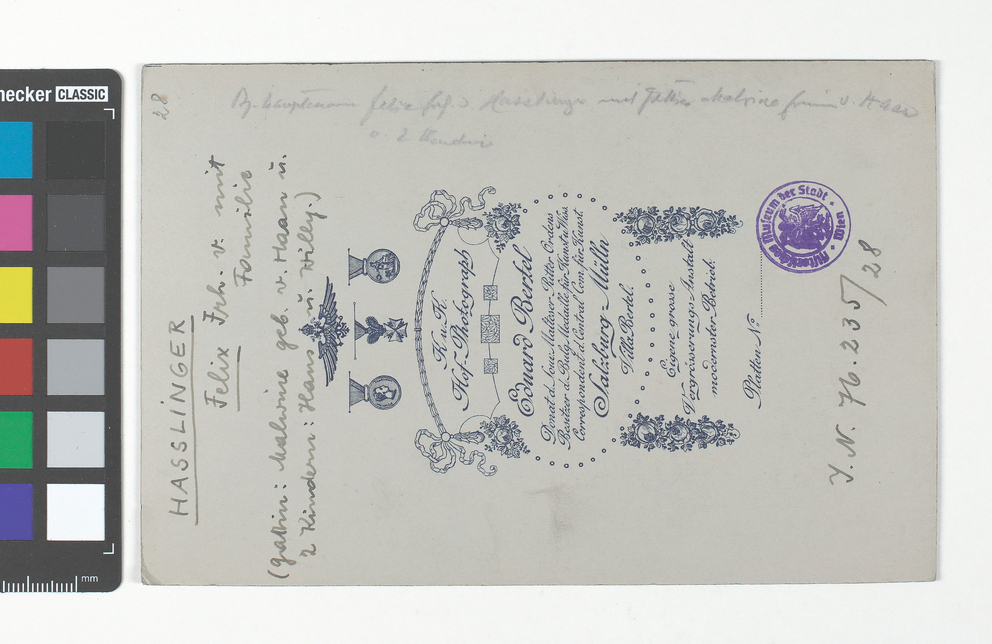 HASSLINGER
Felix Frh. v. mit
Familie
(Gattin: Malwine geb. v. Haan u.
2 Kindern: Hans u. Willy.)
28
Felix Frh. v. Hasslinger mit Gattin Malvine v. Haan
u. 2
K. u. K.
Hof-Photograph
Eduard Bertel
Donat d. Souv. Malteser-Ritter Ordens
Besitzer d. Pästl. Medaille für Kunst
Correspondent d. Central Com. für Kunst
Salzburg-Mülln
Villa Bertel.
Eigene grosse
Vergrösserungs-Anstalt
modernster Betrieb.
Platten Nº
Museum der Stadt Wien
I.N. 76.235/28
hecker CLASSIC
mm